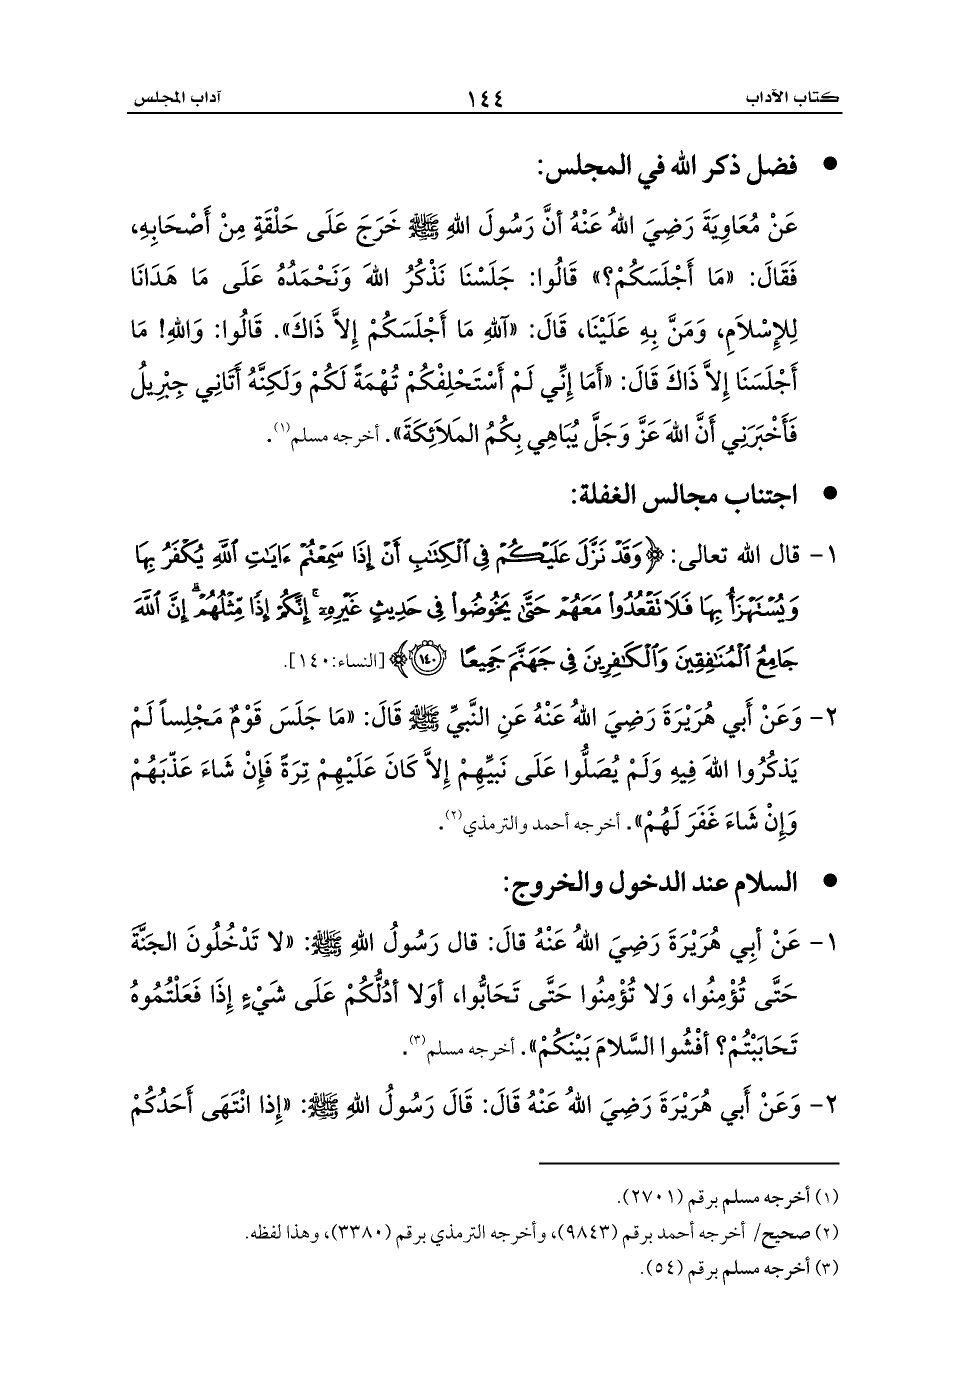 كتاب الآداب ١٤٤ آداب المجلس
● فضل ذكر الله في المجلس:
عَنْ مُعَاوِيَةَ رَضِيَ اللهُ عَنْهُ أنَّ رَسُولَ اللهِ ﷺ خَرَجَ عَلَى حَلْقَةٍ مِنْ أَصْحَابِهِ،
فَقَالَ: «مَا أَجْلَسَكُمْ؟» قَالُوا: جَلَسْنَا نَذْكُرُ اللهَ وَنَحْمَدُهُ عَلَى مَا هَدَانَا
لِلإِسْلاَمِ، وَمَنَّ بِهِ عَلَيْنَا، قَالَ: «آللهِ مَا أَجْلَسَكُمْ إِلاَّ ذَاكَ». قَالُوا: وَاللهِ! مَا
أَجْلَسَنَا إِلاَّ ذَاكَ قَالَ: «أَمَا إِنِّي لَمْ أَسْتَحْلِفْكُمْ تُهْمَةً لَكُمْ وَلَكِنَّهُ أَتَانِي جِبْرِيلُ
فَأَخْبَرَنِي أَنَّ اللهَ عَزَّ وَجَلَّ يُبَاهِي بِكُمُ المَلاَئِكَةَ». أخرجه مسلم(١).
● اجتناب مجالس الغفلة:
١- قال الله تعالى: ﴿وَقَدْ نَزَّلَ عَلَيْكُمْ فِي ٱلْكِتَٰبِ أَنْ إِذَا سَمِعْتُمْ ءَايَٰتِ ٱللَّهِ يُكْفَرُ بِهَا
وَيُسْتَهْزَأُ بِهَا فَلَا تَقْعُدُوا۟ مَعَهُمْ حَتَّىٰ يَخُوضُوا۟ فِي حَدِيثٍ غَيْرِهِۦٓ ۚ إِنَّكُمْ إِذًا مِّثْلُهُمْ ۗ إِنَّ ٱللَّهَ
جَامِعُ ٱلْمُنَٰفِقِينَ وَٱلْكَٰفِرِينَ فِي جَهَنَّمَ جَمِيعًا ١٤٠﴾ [النساء:١٤٠].
٢- وَعَنْ أَبي هُرَيْرَةَ رَضِيَ اللهُ عَنْهُ عَنِ النَّبِيِّ ﷺ قَالَ: «مَا جَلَسَ قَوْمٌ مَجْلِساً لَمْ
يَذكُرُوا اللهَ فِيهِ وَلَمْ يُصَلُّوا عَلَى نَبِيِّهِمْ إِلاَّ كَانَ عَلَيْهِمْ تِرَةً فَإِنْ شَاءَ عَذّبَهُمْ
وَإِنْ شَاءَ غَفَرَ لَهُمْ». أخرجه أحمد والترمذي(٢).
● السلام عند الدخول والخروج:
١- عَنْ أبِي هُرَيْرَةَ رَضِيَ اللهُ عَنْهُ قالَ: قال رَسُولُ اللهِ ﷺ: «لا تَدْخُلُونَ الجَنَّةَ
حَتَّى تُؤْمِنُوا، وَلا تُؤْمِنُوا حَتَّى تَحَابُّوا، أوَلا أدُلُّكُمْ عَلَى شَيْءٍ إِذَا فَعَلْتُمُوهُ
تَحَابَبْتُمْ؟ أفْشُوا السَّلامَ بَيْنَكُمْ». أخرجه مسلم(٣).
٢- وَعَنْ أَبي هُرَيْرَةَ رَضِيَ اللهُ عَنْهُ قَالَ: قَالَ رَسُولُ اللهِ ﷺ: «إِذا انْتَهَى أَحَدُكُمْ
(١) أخرجه مسلم برقم (٢٧٠١).
(٢) صحيح/ أخرجه أحمد برقم (٩٨٤٣)، وأخرجه الترمذي برقم (٣٣٨٠)، وهذا لفظه.
(٣) أخرجه مسلم برقم (٥٤).